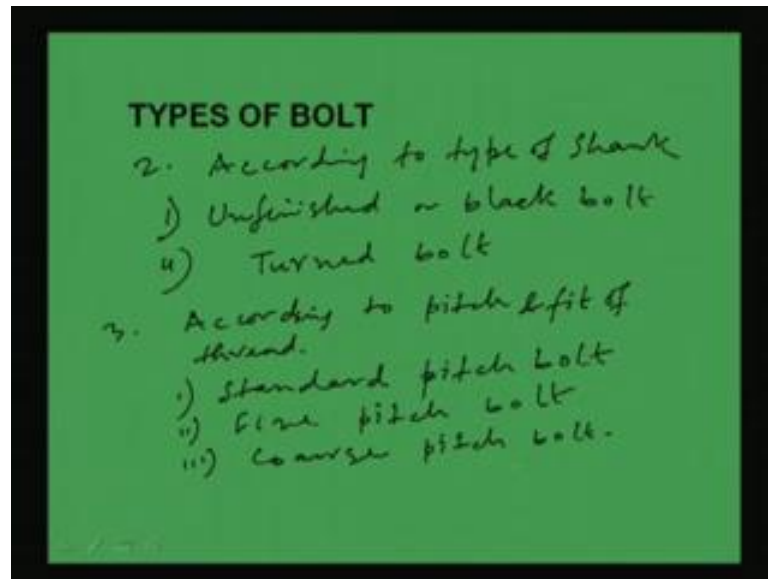 TYPES OF BOLT
2. According to type of Shank
i) Unfinished or black bolt
ii) Turned bolt
3. According to pitch & fit of
thread.
i) Standard pitch bolt
ii) Fine pitch bolt
iii) Coarge pitch bolt.